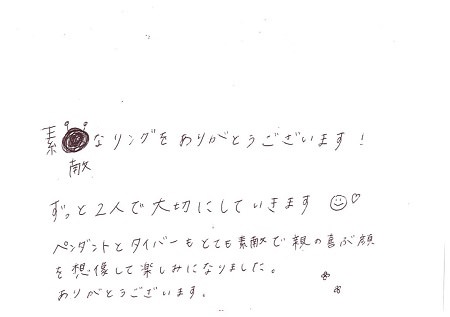 素敵なリングをありがとうございます！
ずっと2人で大切にしていきます
ペンダントとタイバーもとても素敵で親の喜ぶ顔
を想像して楽しみになりました。
ありがとうございます。